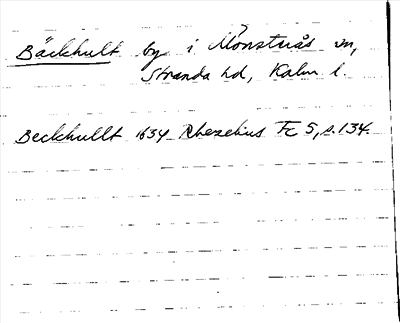 Bäckhult by i Mönsterås sn,
Stranda hd, Kalm l.
Beckhullt 1634 Rhezelius Fc 5, s. 134.